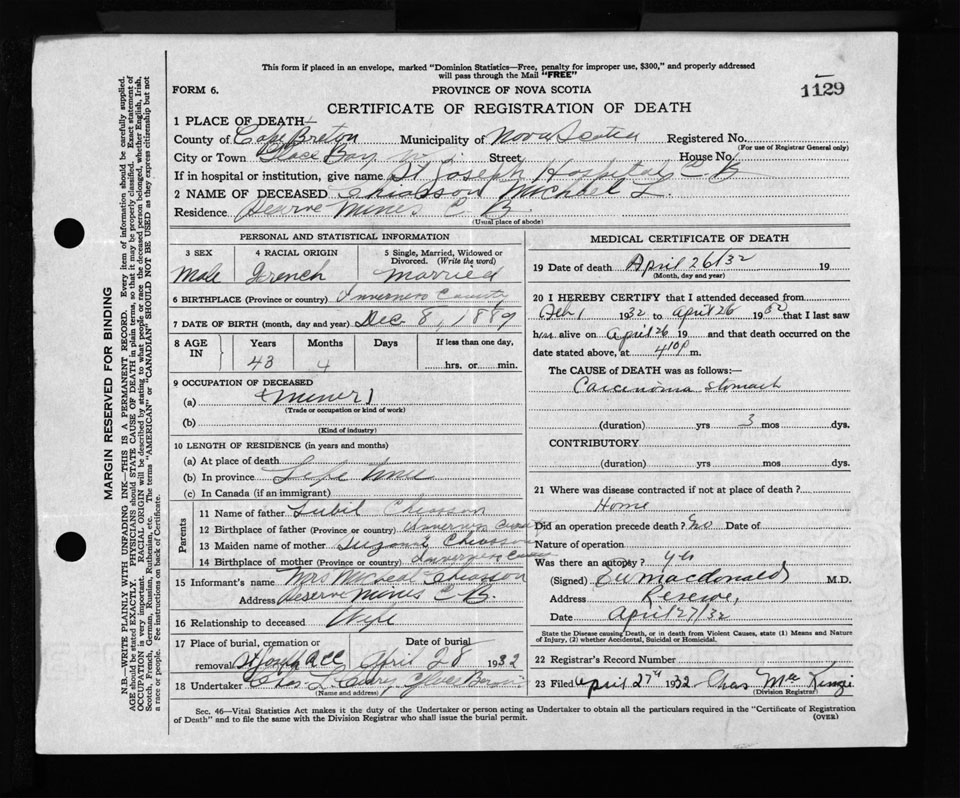 This form if placed in an envelope, marked "Dominion Statistics—Free, penalty for improper use, $300," and properly addressed
will pass through the Mail "FREE"
FORM 6. PROVINCE OF NOVA SCOTIA 1129
CERTIFICATE OF REGISTRATION OF DEATH
1 PLACE OF DEATH—
County of Cape Breton Municipality of Nova Scotia Registered No.
(For use of Registrar General only)
City or Town Glace Bay Street House No.
If in hospital or institution, give name St Joseph Hospital C B
2 NAME OF DECEASED Chiasson Michael L
Residence Reserve Mines C B.
(Usual place of abode)
PERSONAL AND STATISTICAL INFORMATION
3 SEX 4 RACIAL ORIGIN 5 Single, Married, Widowed or
Divorced. (Write the word)
Male French Married
6 BIRTHPLACE (Province or country) Inverness County
7 DATE OF BIRTH (month, day and year) Dec 8, 1889
8 AGE IN Years Months Days If less than one day,
43 4 hrs. or min.
9 OCCUPATION OF DECEASED
(a) Miner
(Trade or occupation or kind of work)
(b)
(Kind of industry)
10 LENGTH OF RESIDENCE (in years and months)
(a) At place of death
(b) In province Life time
(c) In Canada (if an immigrant)
Parents
11 Name of father Chiasson
12 Birthplace of father (Province or country) Inverness
13 Maiden name of mother Chiasson
14 Birthplace of mother (Province or country) Inverness
15 Informant's name Mrs Micheal Chiasson
Address Reserve Mines C B.
16 Relationship to deceased Wife
17 Place of burial, cremation or Date of burial
removal April 28 1932
18 Undertaker Chas L Curry
(Name and address)
MEDICAL CERTIFICATE OF DEATH
19 Date of death April 26/32 19
(Month, day and year)
20 I HEREBY CERTIFY that I attended deceased from
1932 to April 26 1932 that I last saw
him alive on April 26 19 and that death occurred on
date stated above, at 410P m.
The CAUSE of DEATH was as follows:—
Carcinoma stomach
(duration) yrs 3 mos dys.
CONTRIBUTORY
(duration) yrs mos dys.
21 Where was disease contracted if not at place of death?
Home
Did an operation precede death? No Date of
Nature of operation
Was there an autopsy? yes
(Signed) Macdonald M.D.
Address Reserve,
Date April 27/32
State the Disease causing Death, or in death from Violent Causes, state (1) Means and
Nature of Injury, (2) whether Accidental, Suicidal or Homicidal.
22 Registrar's Record Number
23 Filed April 27th 1932 Chas McKenzie
(Division Registrar)
Sec. 46—Vital Statistics Act makes it the duty of the Undertaker or person acting as Undertaker to obtain all the particulars required in the "Certificate of Registration
of Death" and to file the same with the Division Registrar who shall issue the burial permit. (OVER)
MARGIN RESERVED FOR BINDING
N.B.—WRITE PLAINLY WITH UNFADING INK—THIS IS A PERMANENT RECORD. Every item of information should be carefully supplied.
AGE should be stated EXACTLY. PHYSICIANS should STATE CAUSE OF DEATH in plain terms, so that it may be properly classified. Exact statement of
OCCUPATION is very important. RACIAL ORIGIN will be described by stating to what people or race the deceased person belonged, whether English, Irish,
Scotch, French, German, Russian, Ruthenian, etc. The terms "AMERICAN" or "CANADIAN" SHOULD NOT BE USED as they express citizenship but not
a race or people. See instructions on back of Certificate.